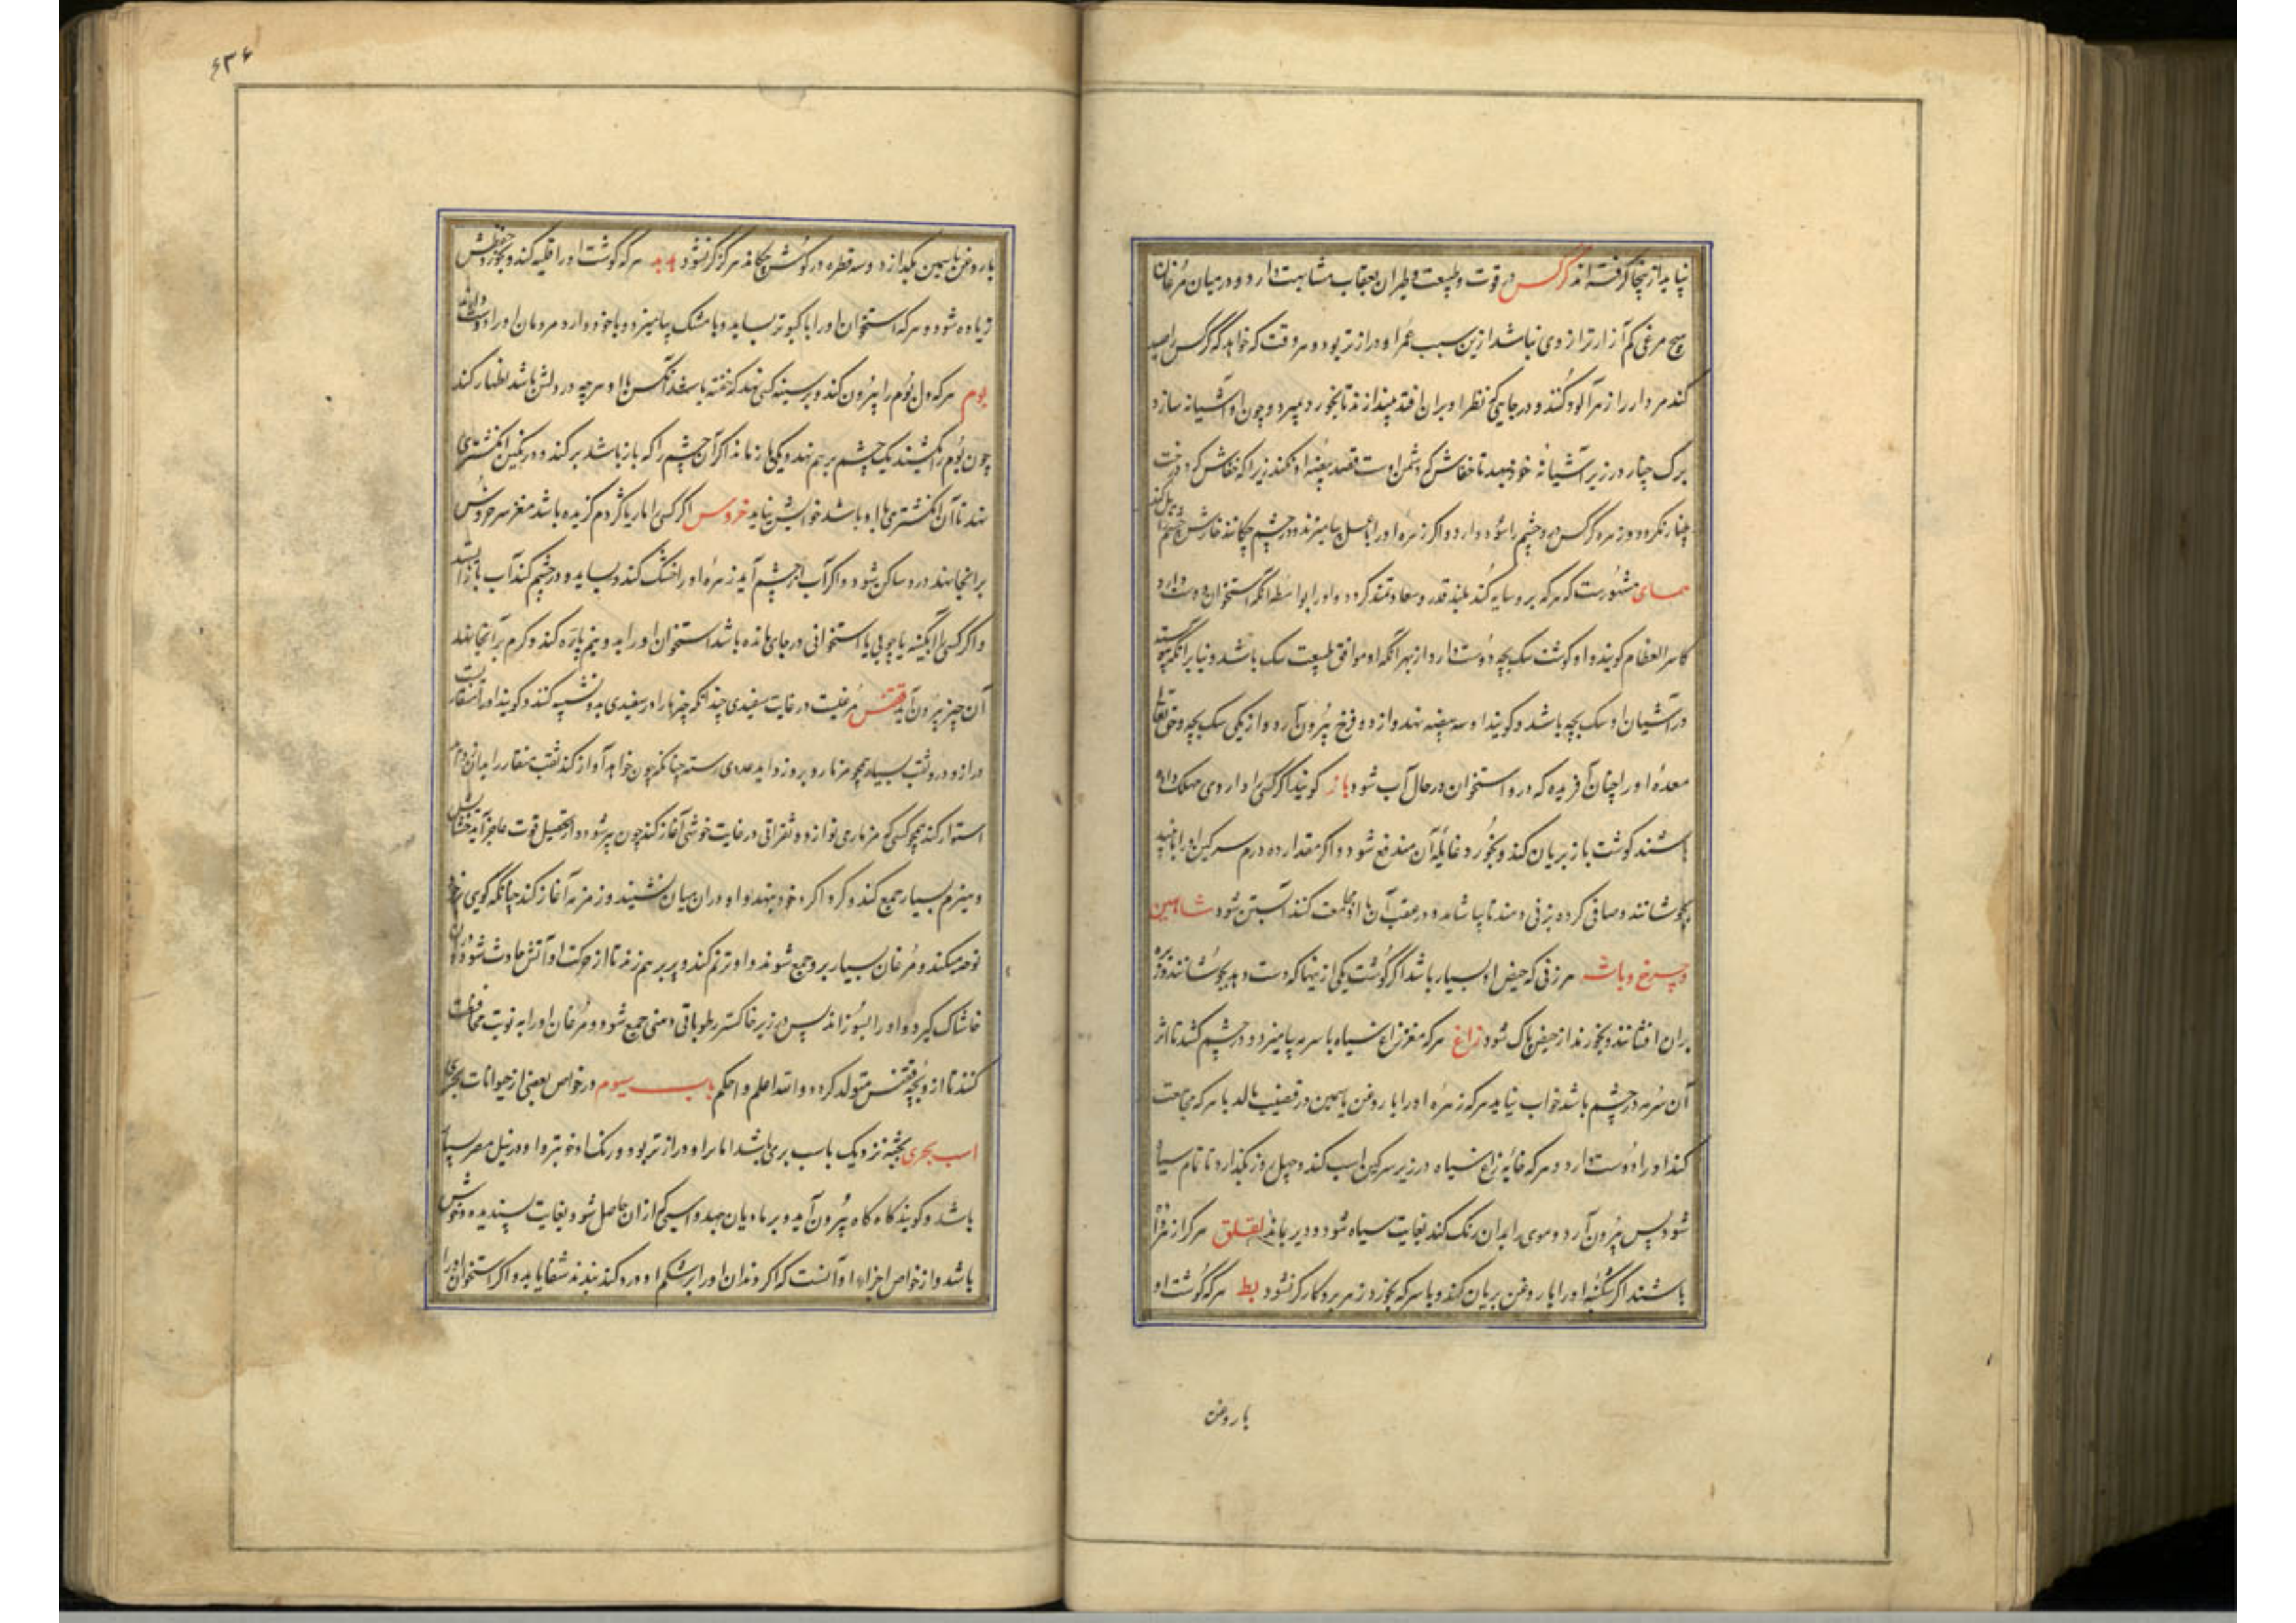 نیاید از پنجا گرفته اند کرکس در قوت و طبیعت و طیران بعقاب مشابهت دارد و در میان مرغان
هیچ مرغی کم آزارتر از وی نباشد ازین سبب عمر او درازتر بود و هر وقت که خواهد که کرکس را صید
کند مردار را زهرآلود کنند و در جایی که نظر او بران افتد بیندازند تا بخورد بمیرد و چون او آشیانه سازد
برک چنار در زیر آشیانه خود نهد تا خفاش که دشمن اوست قصد بیضه او نکند زیرا که خفاش کرد درخت
چنار نکردد و زهره کرکس درد چشم را سود دارد و اکر زهره او را بعسل بیامیزند و در چشم چکانند خارش چشم را زایل کند
همای مشهورست که هر که برو سایه کند بلند قدر و سعادتمند کردد و او را بواسطه آنکه استخوان دوست دارد
کاسر العظام کویند و او کوشت سک بچه دوست دارد از بهر آنکه او موافق طبیعت سک باشد و بنابر آنکه پیوسته
در آشیان او سک بچه باشد و کویند او سه بیضه نهد و از دو فرخ بیرون آرد و از یکی سک بچه و حق تعالی
معده او را چنان آفریده که درو استخوان در حال آب شود باز کویند اکر کسی را داروی مهلک داده
باشند کوشت باز بریان کند و بخورد غایله آن مندفع شود و اکر مقدار ده درم سرکین او را با نبید
بجوشانند و صافی کرده بزنی دهند تا بیاشامد و در عقب آن با او مجامعت کنند آبستن شود شاهین
و چرغ و باشه هر زنی که حیض او بسیار باشد اکر کوشت یکی ازینها که دست دهد بجوشانند و زیره
بران افشانند و بخورند از حیض پاک شود زاغ هر که مغز زاغ سیاه با سرمه بیامیزد و در چشم کشد تا اثر
آن سرمه در چشم باشد خواب نیاید هر که زهره او را با روغن یاسمین در قضیب مالد با هر که مجامعت
کند او را دوست دارد و هر که خایه زاغ سیاه در زیر سرکین اسب کند و چهل روز بگذارد تا تمام سیاه
شود پس بیرون آرد و موی را بدان رنک کند بغایت سیاه شود و دیر بماند لقلق هر کرا زهر داده
باشند اکر شکنبه او را با روغن بریان کند و با سرکه بخورد زهر برو کارکر نشود بط هر که کوشت او
با روغن
۶۳۶
با روغن یاسمین بگدازد و سه قطره در کوش چکاند هرکز کر نشود هدهد هر که کوشت او را قلیه کند و بخورد حفظش
زیاده شود و هر که استخوان او را با کبوتر بساید و با مشک بیامیزد و با خود دارد مردمان او را دوست دارند
بوم هر که دل بوم را بیرون کند و بر سینه کسی نهد که خفته باشد آنکس با او هر چه در دلش باشد اظهار کند
چون بوم را بکشند یک چشم بر هم نهد و یکی باز ماند اکر آن چشم را که باز باشد بر کند و در نکین انکشتری
نهد تا آن انکشتری با او باشد خوابش نیاید خروس اکر کسی را مار یا کژدم کزیده باشد مغز سر خروس
بر آنجا نهند درد ساکن شود و اکر آب از چشم آید زهره او را خشک کند و بساید و در چشم کند آب باز ایستد
و اکر کسی را آبکینه یا چوبی یا استخوانی در جای مانده باشد استخوان او را بدو نیم پاره کند و کرم بر آنجا نهند
آن چیز بیرون آید ققنس مرغیست در غایت سفیدی چندانکه چیزها را در سفیدی بدو تشبیه کنند و کویند او را منقاریست
دراز و درو ثقب بسیار همچو مزمار و بر وزواید عددی رسته چنانکه چون خواهد آواز کند ثقب منقار را بدان
استوار کند همچو کسی که مزماری نوازد و نقراتی در غایت خوشی آغاز کند چون پیر شود و از تحصیل قوت عاجز آید خشاش
و هیزم بسیار جمع کند و کرداکرد خود بنهد و او در ان میان نشیند و زمزمه آغاز کند چنانکه کویی بر خود
نوحه میکند و مرغان بسیار برو جمع شوند و او ترنم کند و پر بر هم زند تا از حرکت او آتش حادث شود و در آن
خاشاک کیرد و او را بسوزاند پس در زیر خاکستر رطوباتی دهنی جمع شود و مرغان او را به نوبت محافظت
کنند تا از و بچه ققنس متولد کردد والله اعلم و احکم باب سیوم در خواص بعضی از حیوانات بحری
اسب بحری بجثه نزدیک باسب بری باشد اما سر او درازتر بود و رنک او خوبتر و او در نیل مصر بسیار
باشد و کویند کاه کاه بیرون آید و بر مادیان جهد و اسبی که از ان حاصل شود بغایت پسندیده و خوش
باشد و از خواص اجزاء او آنست که اکر دندان او را بر شکم او درد کند بندند شفا یابد و اکر استخوان او را